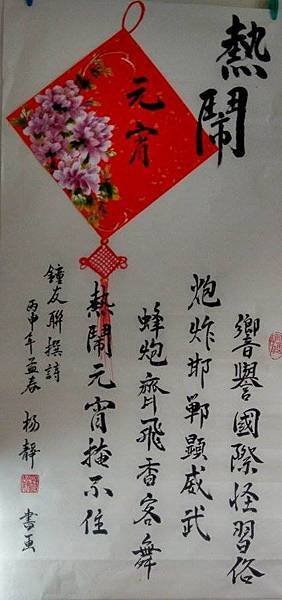 熱鬧
元宵
響譽國際怪習俗
炮炸邯鄲顯威武
蜂炮齊飛香客舞
熱鬧元宵掩不住
鐘友聯撰詩
丙申年孟春 楊靜 書画